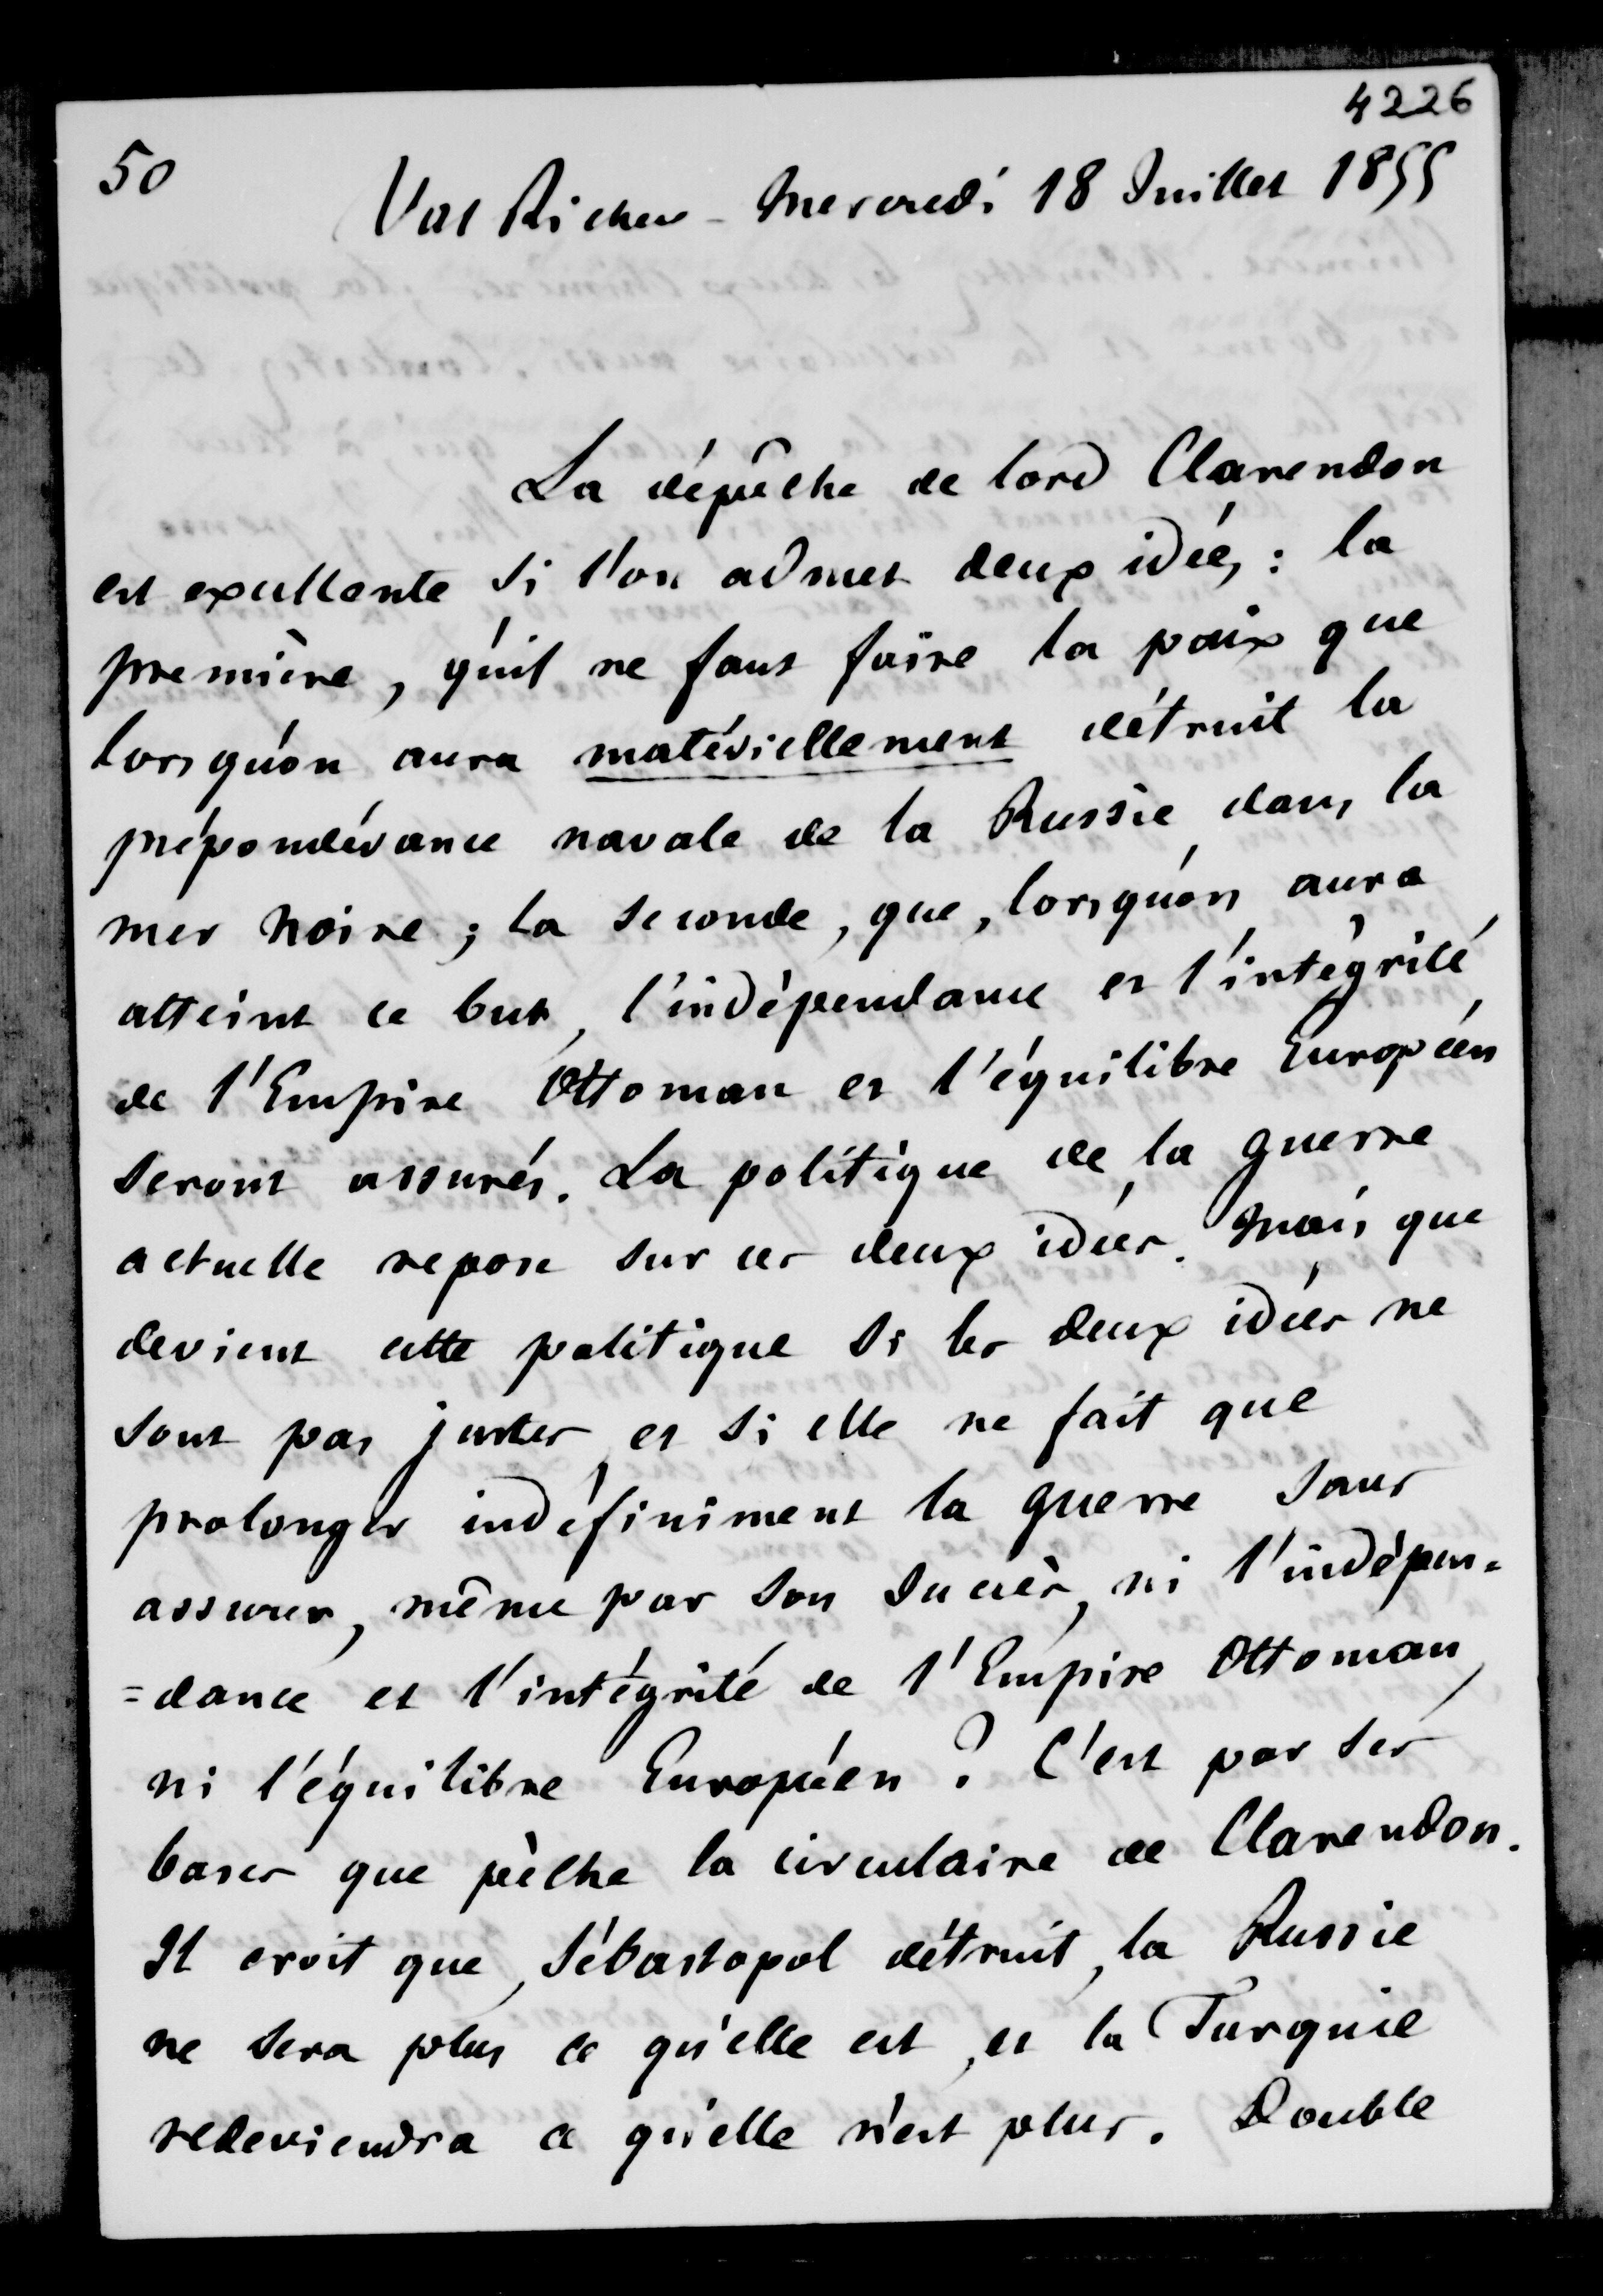 4226
50
Val Richer - Mercredi 18 Juillet 1855
La dépêche de lord Clarendon
est excellente si l'on admet deux idées : la
première, qu'il ne faut faire la paix que
lorsqu'on aura matériellement détruit la
prépondérance navale de la Russie dans la
mer noire ; la seconde, que, lorsqu'on aura
atteint ce but, l'indépendance et l'intégrité
de l'Empire Ottoman et l'équilibre Européen
seront assurés. La politique de la guerre
actuelle repose sur ces deux idées. Mais que
devient cette politique si les deux idées ne
sont pas justes, et si elle ne fait que
prolonger indéfiniment la guerre sans
assurer, même par son succès, ni l'indépen=
=dance et l'intégrité de l'Empire Ottoman,
ni l'équilibre Européen ? C'est par ses
bases que pèche la circulaire de Clarendon.
Il croit que, Sébastopol détruit, la Russie
ne sera plus ce qu'elle est, et la Turquie
redeviendra ce qu'elle n'est plus. Double